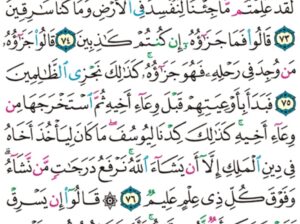 لَقَدْ عَلِمْتُم مَّا جِئْنَا لِنُفْسِدَ فِي ٱلْأَرْضِ وَمَا كُنَّا سَٰرِقِينَ
٧٣ قَالُوا۟ فَمَا جَزَٰٓؤُهُۥٓ إِن كُنتُمْ كَٰذِبِينَ ٧٤ قَالُوا۟ جَزَٰٓؤُهُۥ
مَن وُجِدَ فِي رَحْلِهِۦ فَهُوَ جَزَٰٓؤُهُۥ ۚ كَذَٰلِكَ نَجْزِي ٱلظَّٰلِمِينَ
٧٥ فَبَدَأَ بِأَوْعِيَتِهِمْ قَبْلَ وِعَآءِ أَخِيهِ ثُمَّ ٱسْتَخْرَجَهَا مِن
وِعَآءِ أَخِيهِ ۚ كَذَٰلِكَ كِدْنَا لِيُوسُفَ ۖ مَا كَانَ لِيَأْخُذَ أَخَاهُ
فِي دِينِ ٱلْمَلِكِ إِلَّآ أَن يَشَآءَ ٱللَّهُ ۚ نَرْفَعُ دَرَجَٰتٍ مَّن نَّشَآءُ ۗ
وَفَوْقَ كُلِّ ذِي عِلْمٍ عَلِيمٌ ٧٦ ۞ قَالُوٓا۟ إِن يَسْرِقْ